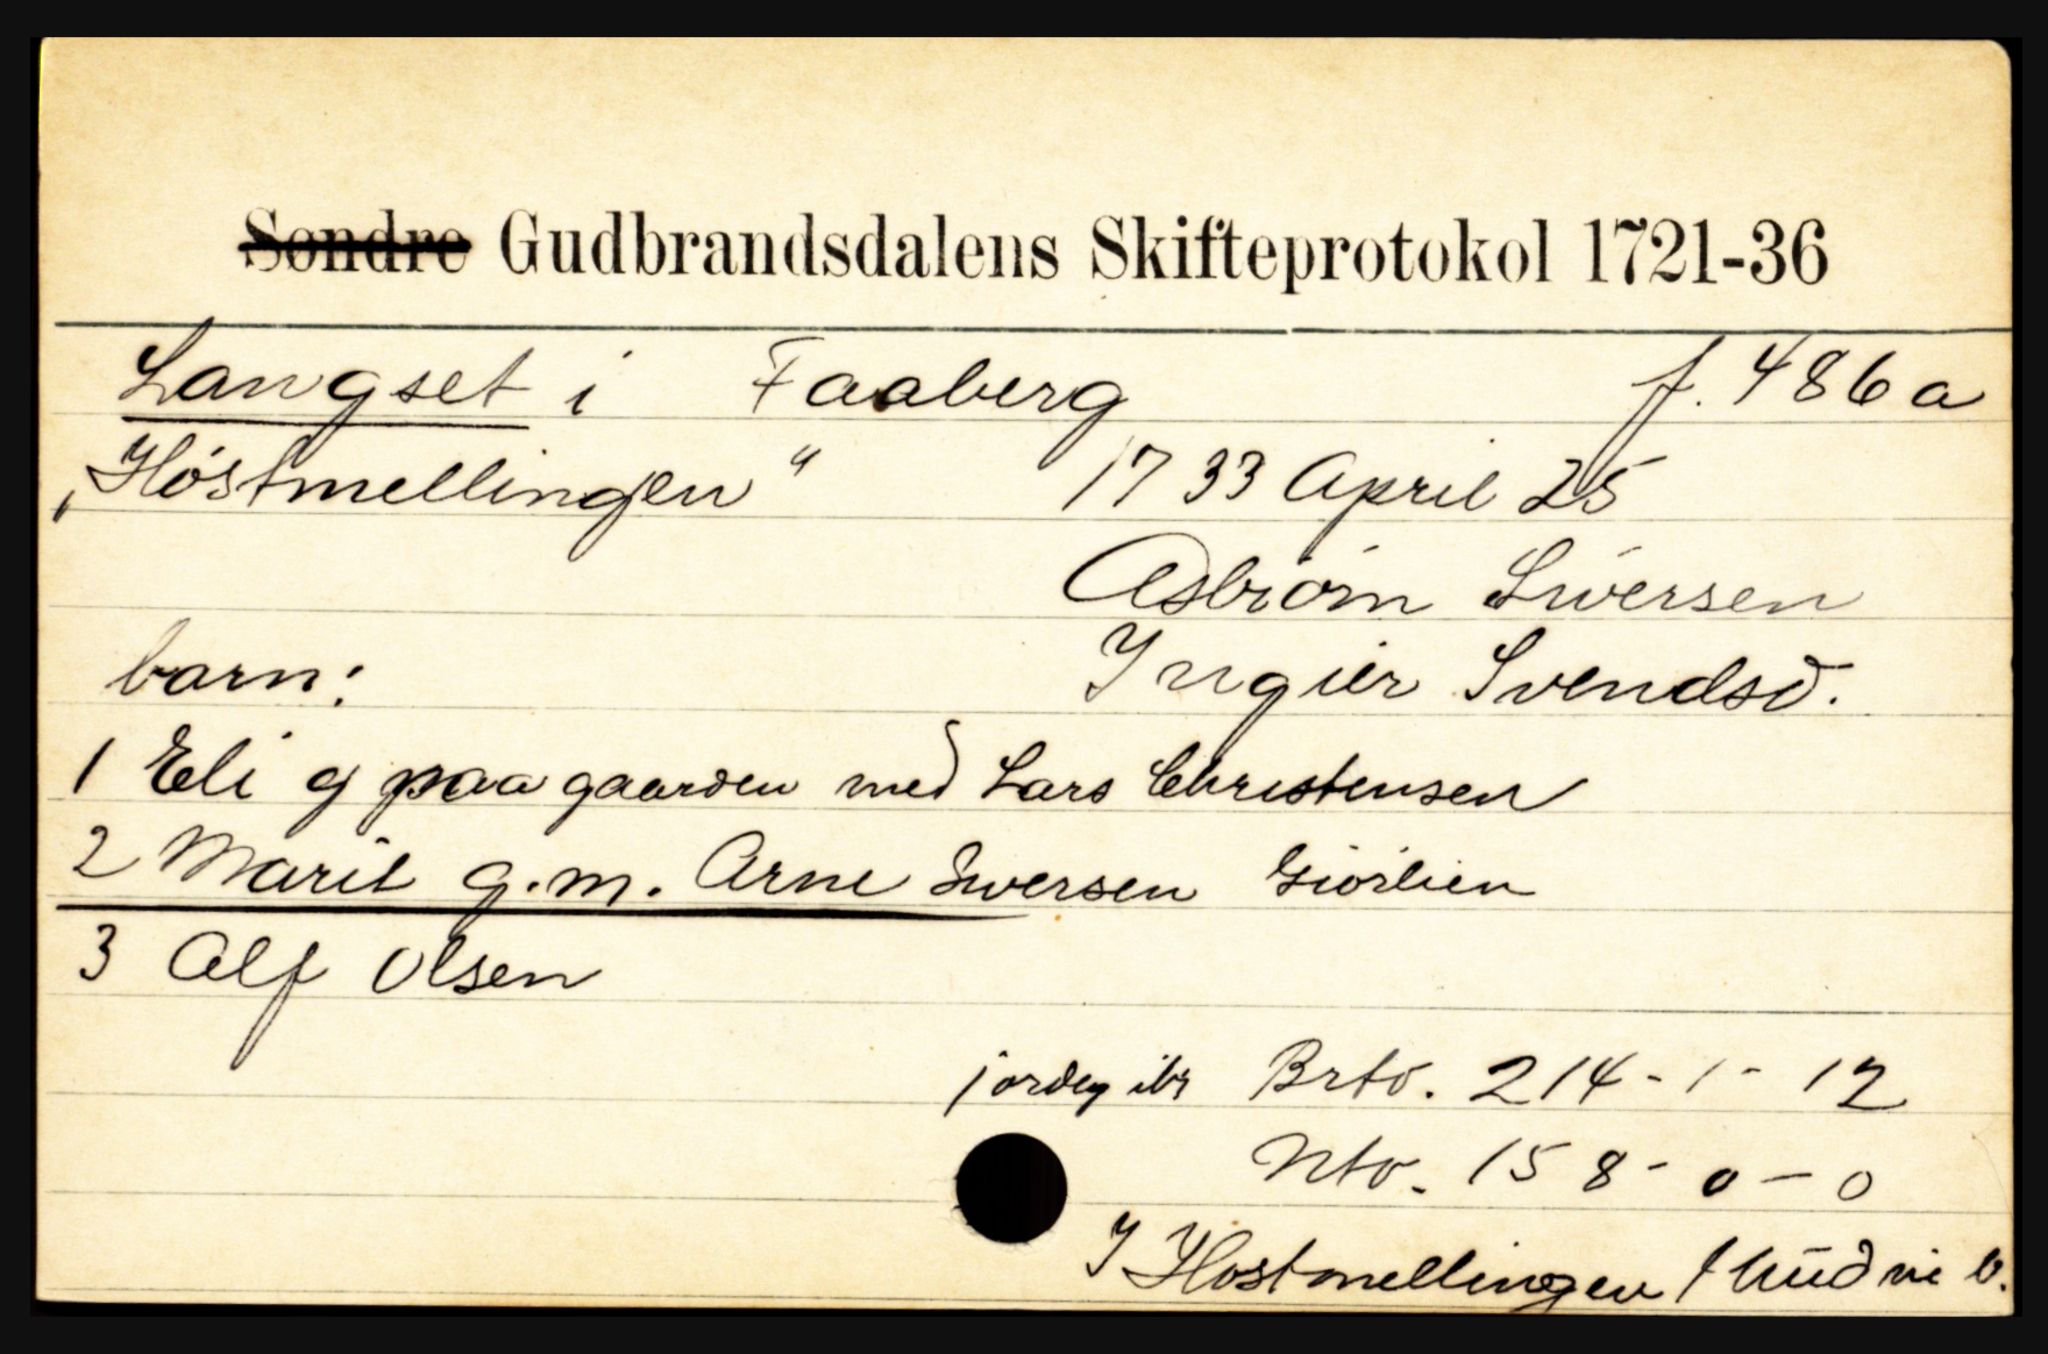 Søndre Gudbrandsdalens Skifteprotokol 1721-36
Langset i Faaberg f. 486a
„Höstmellingen" 1733 April 25
Asbiörn Siversen
barn: Ingier Svendsd.
1 Eli g paa gaarden med Lars Christensen
2 Marit g.m. Arne Iversen Giörlien
3 Alf Olsen
jordeg ibr Brto. 214-1-12
Nto. 158-0-0
I Hostmellingen 1 hud